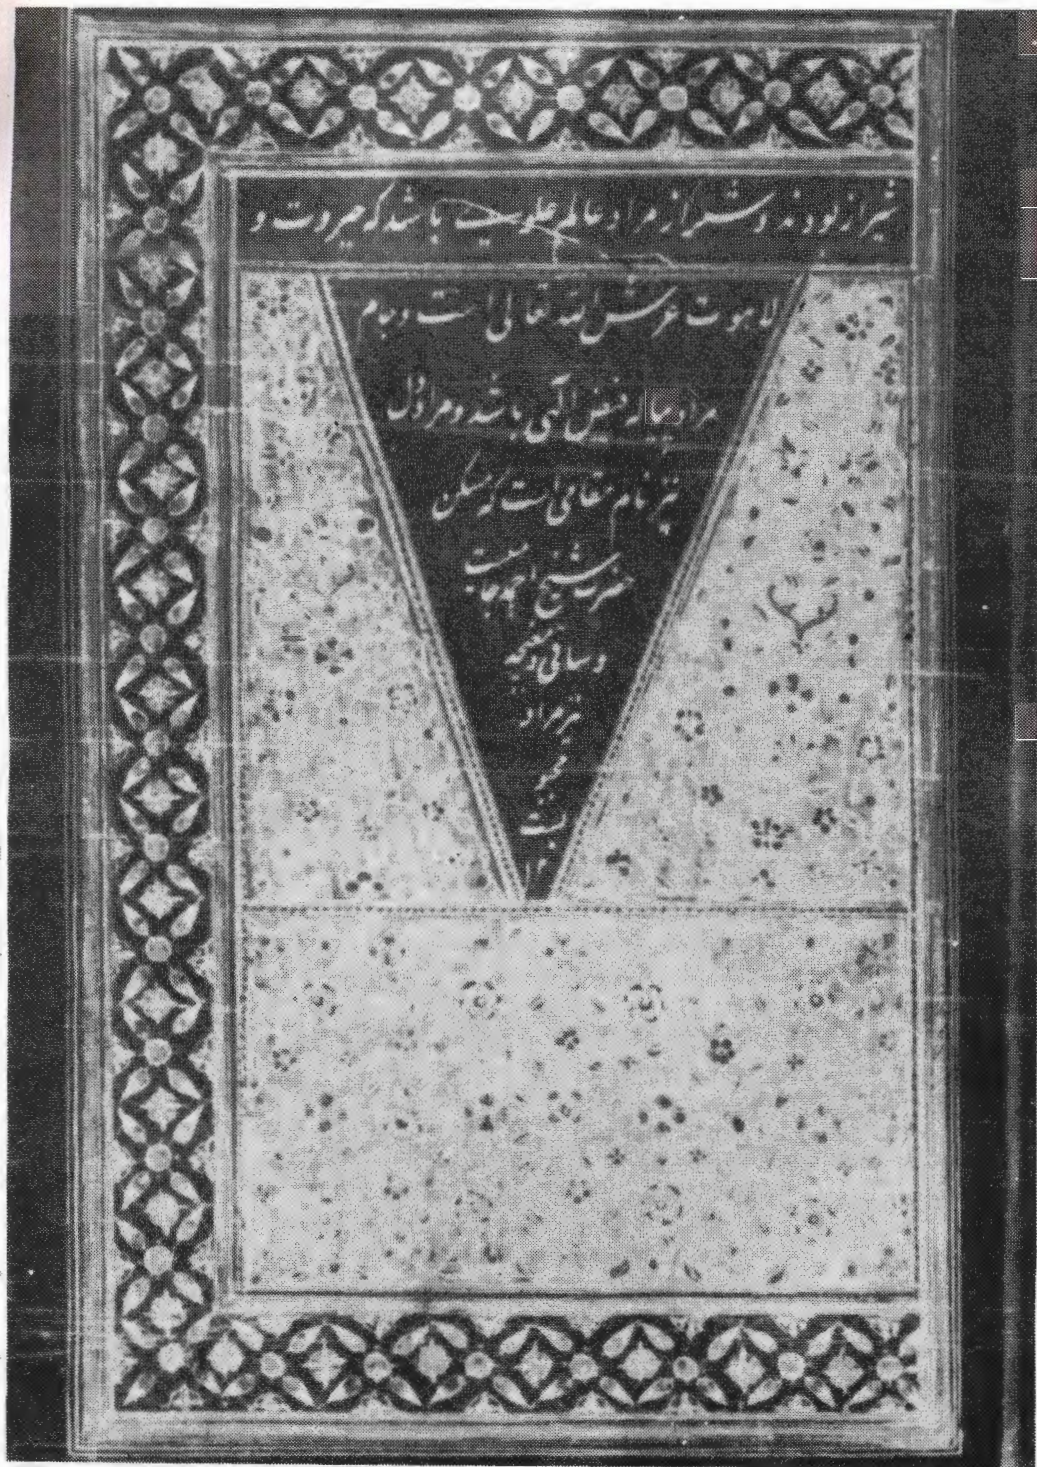 شیراز بودند و شیراز مراد عالم علویست باشد که جبروت و
لاهوت عرش الله تعالی است و جام
مراد پیاله فیض الهی باشد و مراد دل
نیز نام مقامی است که مسکن
حضرت شیخ احمد جامیست
و ساقی و مغبچه
نیز مراد
محبو
بست